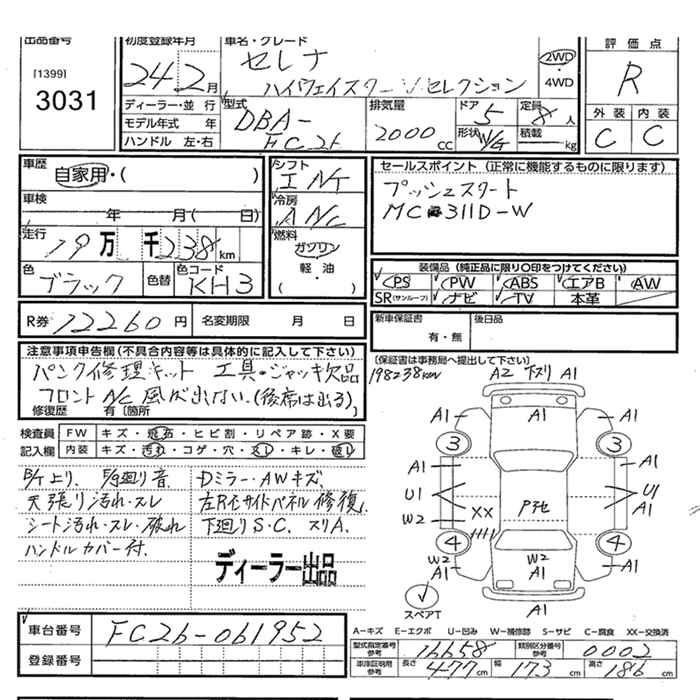 出品番号
[1399]
3031
初度登録年月
24年2月
車名・グレード
セレナ
ハイウェイスターVセレクション
2WD
・
4WD
評価点
R
外装 内装
C C
ディーラー・並行
モデル年式 年
ハンドル 左・右
型式
DBA-
FC26
排気量
2000cc
ドア
5
形状 W/G
定員
8人
積載 kg
車歴
自家用・( )
車検
年 月( 日)
走行
19万 千238km
色
ブラック
色替
色コード
KH3
シフト
INT
冷房
ANC
燃料
ガソリン
・
軽・油
( )
セールスポイント (正常に機能するものに限ります)
プッシュスタート
MC 311D-W
装備品 (純正品に限り○印をつけてください)
PS PW ABS エアB AW
SR(サンルーフ) ナビ TV 本革
R券 12260円
名変期限 月 日
新車保証書
有・無
後日品
注意事項申告欄(不具合内容等は具体的に記入して下さい)
パンク修理キット 工具・ジャッキ欠品
フロントA/C風が出ない.(後席は出る)
修復歴 有〔箇所
〔保証書は事務局へ提出して下さい〕
198238km
検査員
記入欄
FW キズ・飛石・ヒビ割・リペア跡・X要
内装 キズ・汚れ・コゲ・穴・スレ・キレ・破レ
天張り汚れ・スレ
シート汚れ・スレ・破れ
ハンドルカバー付.
Dミラー・AWキズ
下廻りS.C. スリA.
ディーラー出品
A2 下スリ A1
A1
A1
A1
3
3
A1
A1
U1
U1
A1
XX
W2
P池
4
4
W2
A1
W2
A1
W2
A1
A1
スペアT
車台番号
FC26-061952
登録番号
A−キズ E−エクボ U−凹み W−補修跡 S−サビ C−腐食 XX−交換済
型式指定番号
参考
16658
類別区分番号
参考
0002
車庫証明用
参考
長さ 477cm 幅 173cm 高さ 186cm